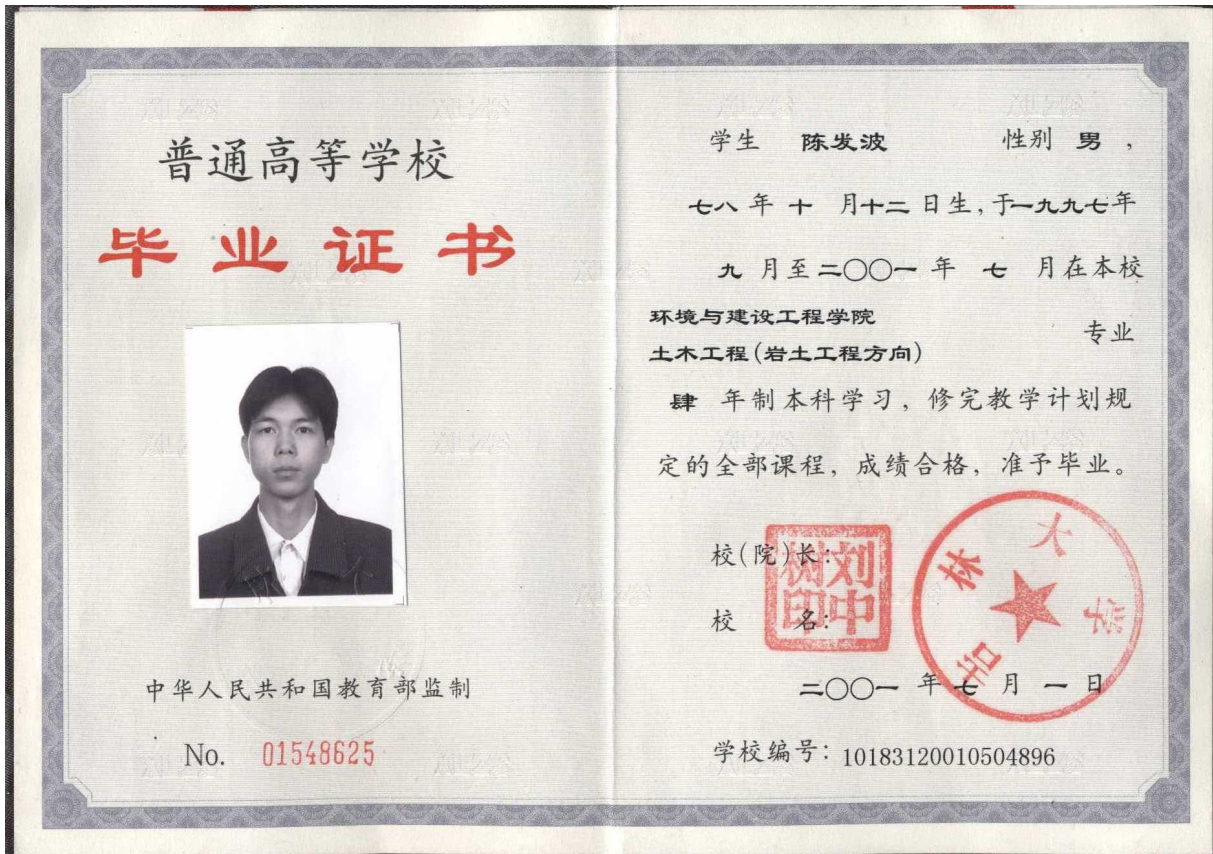 普通高等学校
毕业证书
中华人民共和国教育部监制
No. 01548625
学生 陈发波 性别 男，
七八年十月十二日生，于一九九七年
九月至二〇〇一年七月在本校
环境与建设工程学院
土木工程(岩土工程方向) 专业
肆年制本科学习，修完教学计划规
定的全部课程，成绩合格，准予毕业。
校(院)长：
刘中树印
校名：
吉林大学
二〇〇一年七月一日
学校编号：10183120010504896